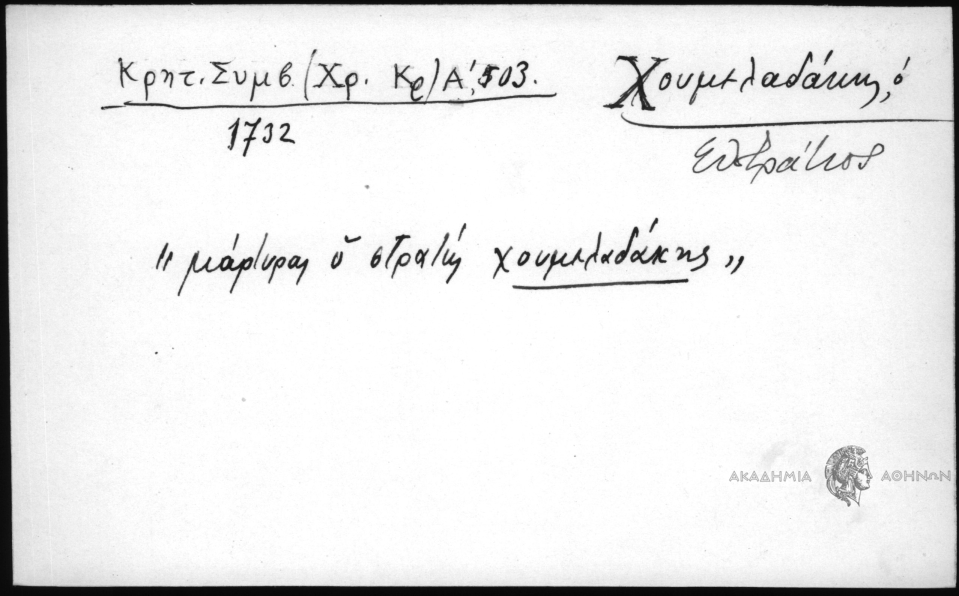 Κρητ. Συμβ. (Χρ. Κρ) Α', 503.
1732
Χουμελαδάκης, ὁ
Εὐστράτιος
"μάρτυρας ὁ στρατής χουμελαδάκης"
ΑΚΑΔΗΜΙΑ ΑΘΗΝΩΝ